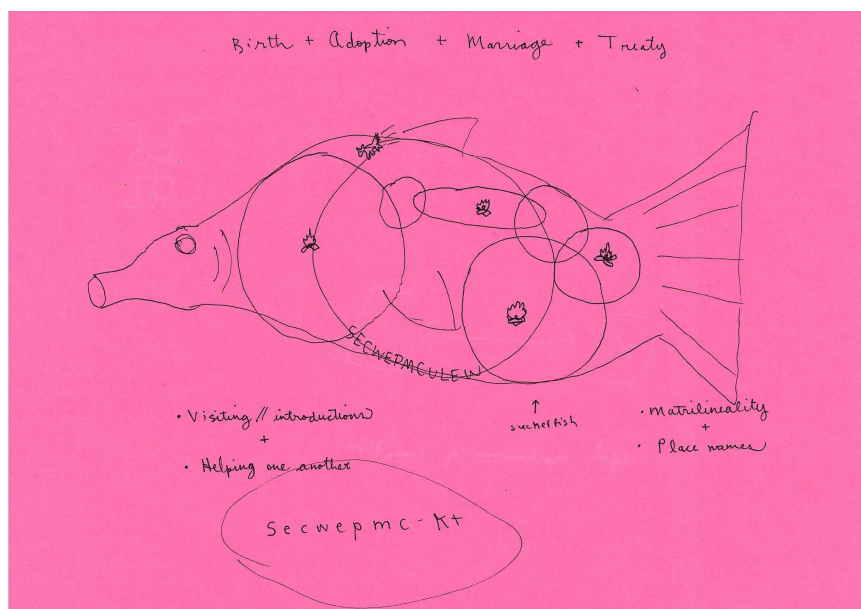 Birth + Adoption + Marriage + Treaty
SECWEPMCULEW
• Visiting // introductions
+
• Helping one another
↑
suckerfish
• Matrilineality
+
• Place names
Secwepmc-Kt